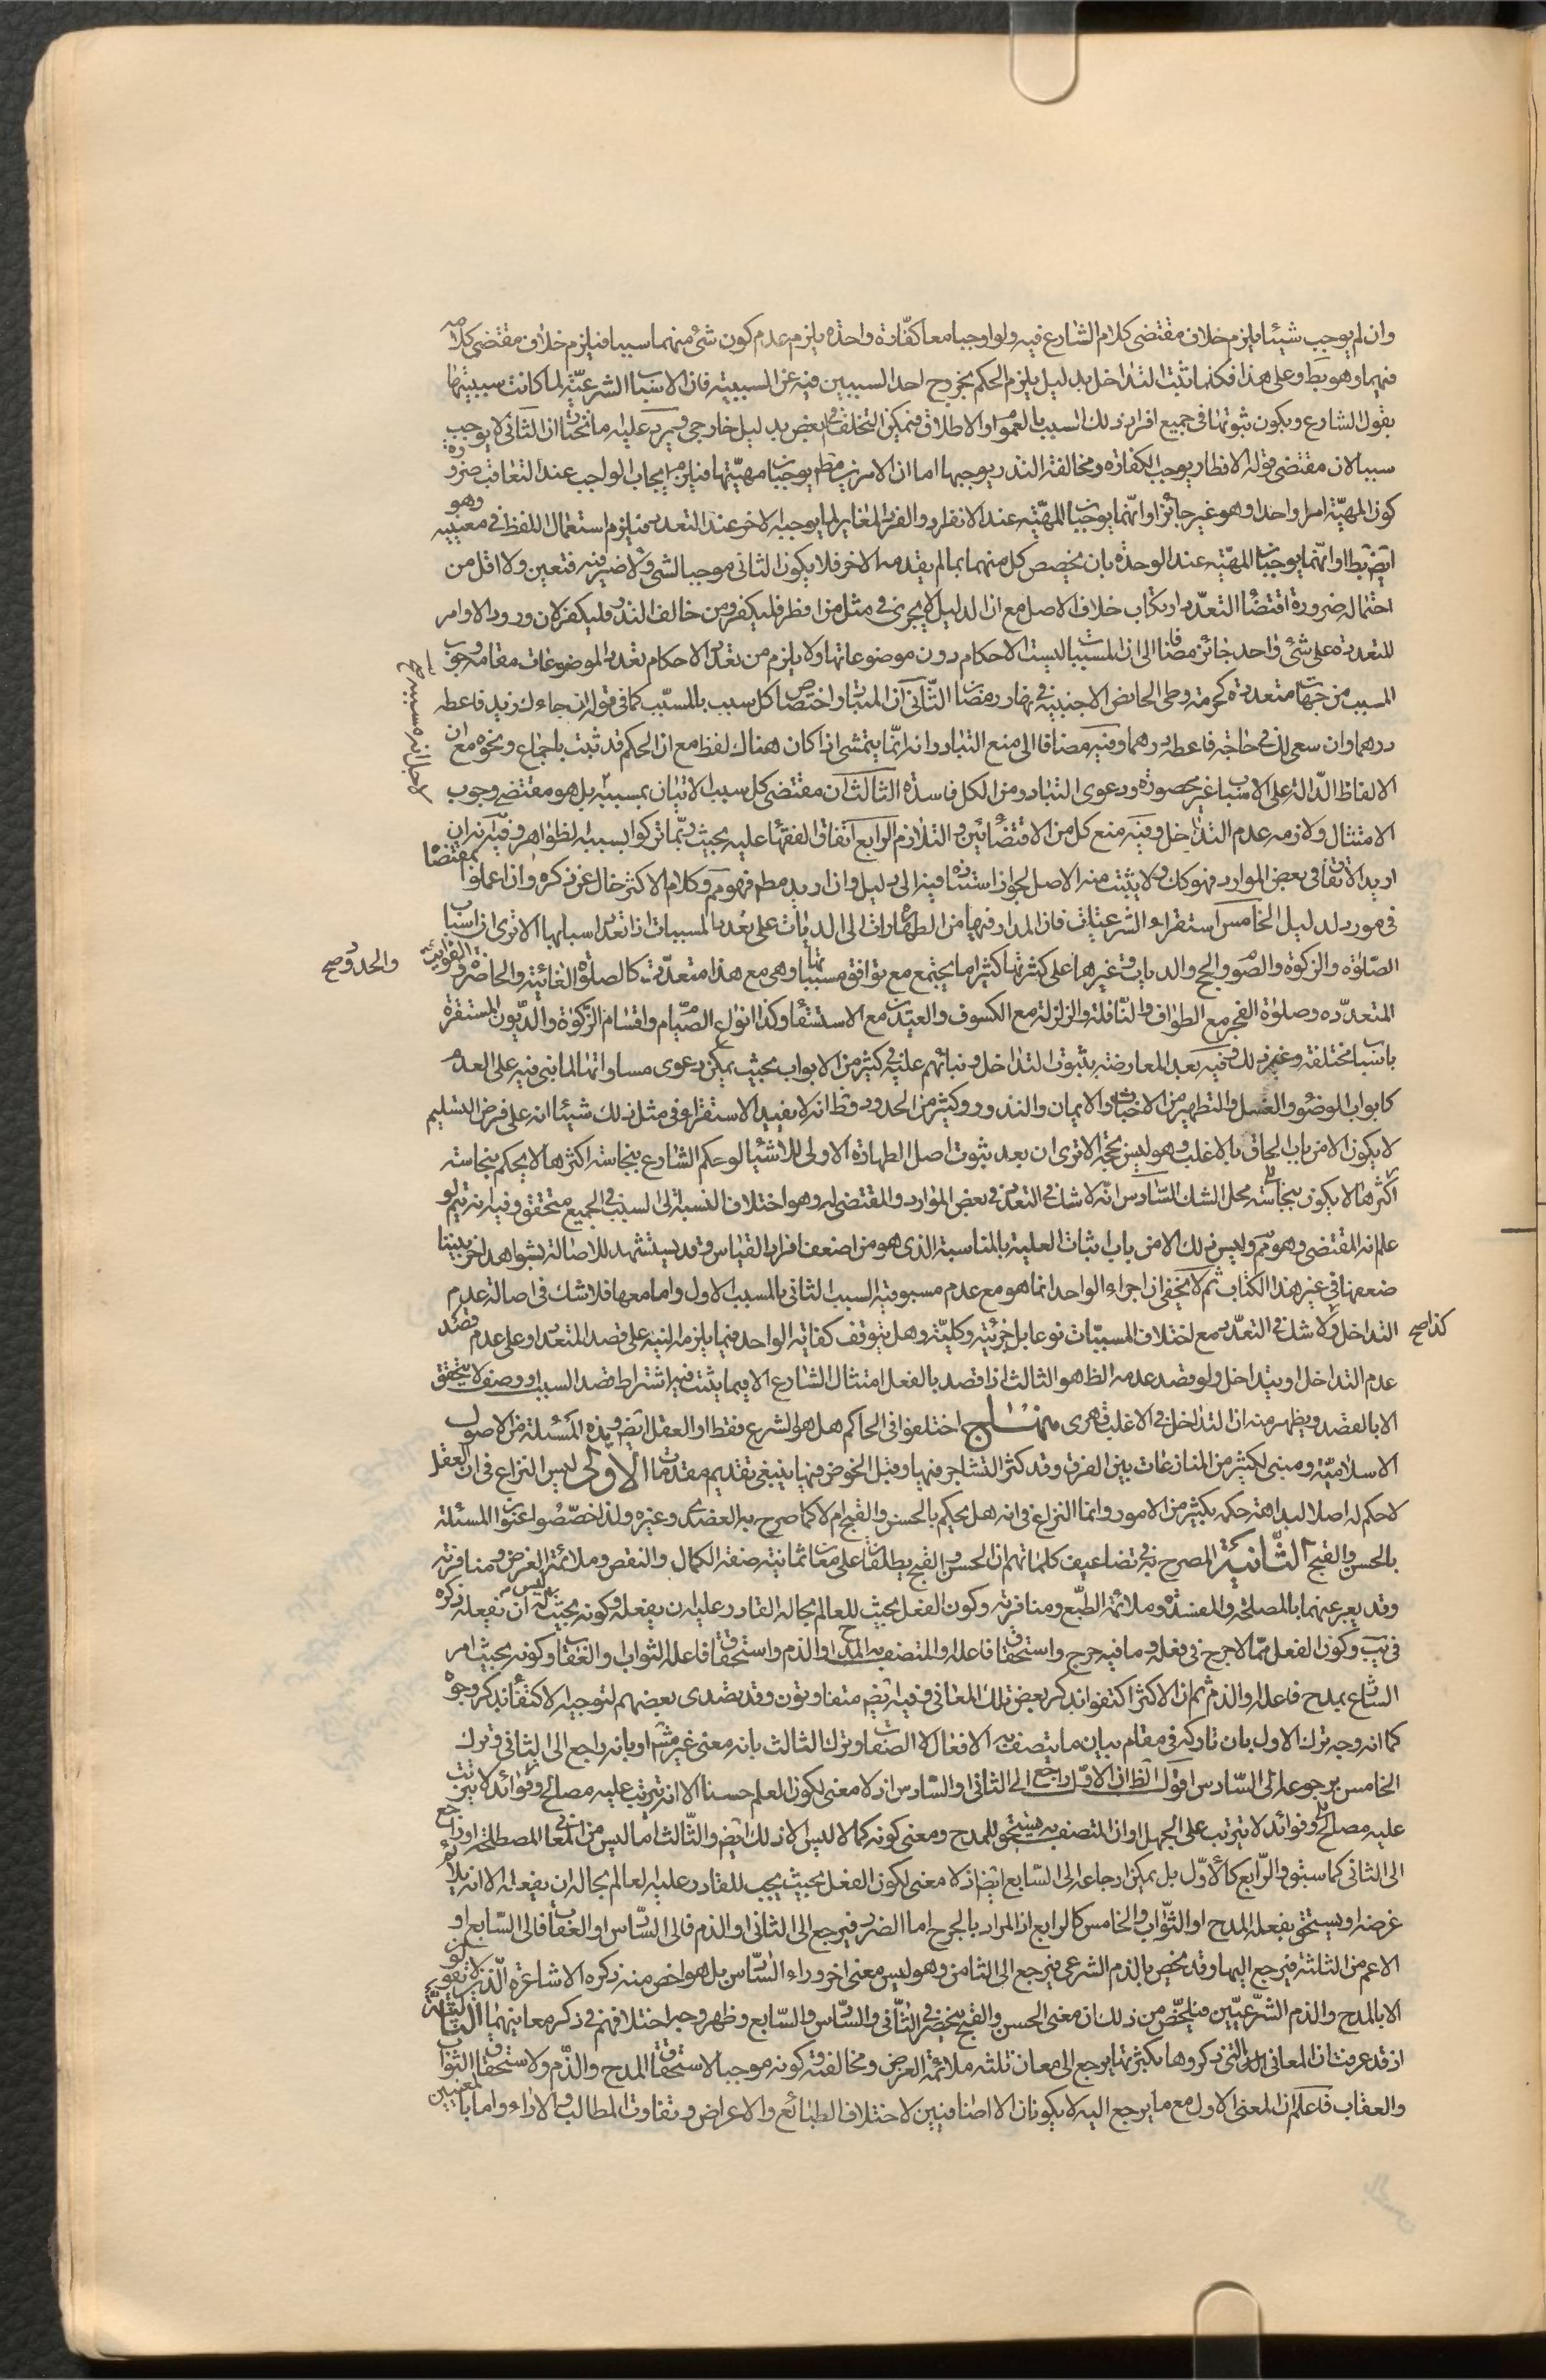 وان لم يوجب شيئا يلزم خلاف مقتضى كلام الشارع فيه ولو اوجبا معا كفّارة واحدة يلزم عدم كون شئ منهما سببا فيلزم خلاف مقتضى كلامه
فيهما وهو بط وعلى هذا فكلما ثبت التداخل بدليل يلزم الحكم بخروج احد السببين فيه عن السببية فان الاسباب الشرعيّة لما كانت سببيتها
بقول الشارع ويكون ثبوتها فى جميع افراد ذلك السبب بالعموم او الاطلاق فيمكن التخلف فى بعض بدليل خارجى ويرد عليه ما نختار ان الثانى لا يوجب
سببا لان مقتضى قوله الافطار يوجب الكفارة ومخالفة النذر يوجبها اما ان الامرين مط يوجبان مهيّتها فيلزم ايجاب الواجب عند التعاقب ضرورة
كون المهيّة امرا واحدا وهو غير جائز او انّهما يوجبان المهيّة عند الانفراد والفرد المغاير لما يوجبه الاخر عند التعدد فيلزم استعمال اللفظ فى معنييه وهو
ايض بط او انّهما يوجبان المهيّة عند الوحدة بان يخصص كل منهما بما لم يقدمه الاخر فلا يكون الثانى موجبا لشئ ولا ضير فيه فتعين ولا اقل من
احتماله ضرورة اقتضاء التعدّد ارتكاب خلاف الاصل مع ان الدليل لا يجرى فى مثل من افطر فليكفر ومن خالف النذر فليكفر لان ورود الاوامر
المتعددة على شئ واحد جائز مضافا الى ان المسببات ليست الا حكام دون موضوعاتها ولا يلزم من تعدد الاحكام تعدد الموضوعات مقامه وجوب
المسبب من جهات متعددة كحرمة وطى الحائض الاجنبية فى نهار رمضان الثانى ان المتبادر اختصاص كل سبب بالمسبّب كما فى قوله ان جاءك زيد فاعطه
درهما وان سعى لك فى حاجة فاعطه درهما وفيه مضافا الى منع التبادر انه انّما يتمشى اذا كان هناك لفظ مع ان الحكم قد ثبت باجماع ونحوه مع ان
الالفاظ الدّالة على الاسباب غير محصورة ودعوى التبادر من الكل فاسدة الثالث ان مقتضى كل سبب الاتيان بمسببه بل هو مقتضى وجوب
الامتثال ولازمه عدم التداخل وفيه منع كل من الاقتضائين والتلازم الرابع اتفاق الفقهاء عليه بحيث ربّما تركوا بسببه الظواهر وفيه انه ان
اريد الاتفاق فى بعض الموارد فهو كك ولا يثبت منه الاصل لجواز استناده فيه الى دليل وان اريد مط فهو مم وكلام الاكثر خال عن ذكره وان اعملوا بمقتضاه
فى مورد لدليل الخامس استقراء الشرعيات فان المدار فيها من الطهارات الى الديات على تعدد المسببات اذا تعدد اسبابها الا ترى ان اسباب
الصّلوة والزكوة والصوم والحج والديات وغيرها على كثرتها كثيرا ما يجتمع مع توافق مسبباتها وهى مع هذا متعدّدة كالصلوة الفائتة والحاضرة والفوايت
والحدود صح
المتعدّده وصلوة الفجر مع الطواف والنّافلة والزلزلة مع الكسوف والعيدين مع الاستسقاء وكذا انواع الصّيام واقسام الزكوة والدّيون المستقرة
باسباب مختلفة وغير ذلك وفيه بعد المعارضة بثبوت التداخل وبنائهم عليه فى كثير من الابواب بحيث يمكن دعوى مساواتها لما بنى فيه على العدم
كابواب الوضوء والغسل والتطهير من الاخباث والايمان والنذور وكثير من الحدود وظ انه لا يفيد الاستقراء فى مثل ذلك شيئا انه على فرض التسليم
لا يكون الا من باب الحاق بالاغلب وهو ليس بحجة الا ترى ان بعد ثبوت اصل الطهارة الاولى للاشياء لو حكم الشارع بنجاسة اكثرها لا يحكم بنجاسة
محل الشك السّادس انّه لا شك فى التعدد فى بعض الموارد والمقتضى له وهو اختلاف النسبة الى السبب فى الجميع متحقق وفيه انه يتم لو
علم انه المقتضى وهو مم وليس ذلك الا من باب اثبات العلية بالمناسبة الذى هو من اضعف افراد القياس وقد يستشهد للاصالة بشواهد اخر بيّنا
ضعفها فى غير هذا الكتاب ثم لا يخفى ان اجراء الواحد انما هو مع عدم مسبوقية السبب الثانى بالمسبب الاول واما معها فلا شك فى اصالة عدم
كذا صح
التداخل ولا شك فى التعدّد مع اختلاف المسببّات نوعا بل جزئية وكليّة وهل يتوقف كفاية الواحد فيما يلزمه النية على قصد المتعدد او على عدم قصد
عدم التداخل او يتداخل ولو قصد عدمه الظ هو الثالث اذا قصد بالفعل امتثال الشارع الا فيما يثبت فيه اشتراط قصد السبب او وصف لا يتحقق
الا بالقصد ويظهر منه ان التداخل فى الاغلب قهرى منهاج اختلفوا فى الحاكم هل هو الشرع فقط او العقل ايض وهذه المسئلة من الاصول
الاسلاميّة ومبنى لكثير من المنازعات بين الفرق وقد كثر التشاجر فيها وقبل الخوض فيها ينبغى تقديم مقدمات الاولى ليس النزاع فى ان العقل
لا حكم له اصلا لبداهة حكمه بكثير من الامور وانما النزاع فى انه هل يحكم بالحسن والقبح ام لا كما صرح به العضدى وغيره ولذا خصّصوا عنوان المسئلة
بالحسن والقبح الثّانية المصرح به فى تضاعيف كلماتهم ان الحسن والقبح يطلقان على معان ثمانية صفة الكمال والنقص وملائمة الغرض ومنافرته
وقد يعبر عنهما بالمصلحة والمفسدة وملائمة الطبّع ومنافرته وكون الفعل بحيث للعالم بحاله القادر عليه ان يفعله وكونه بحيث ليس له ان يفعله ذكره
فى يب وكون الفعل ممّا لا حرج فى فعله وما فيه حرج واستحقاق فاعله والمتصف به المدح او الذم واستحقاق فاعله الثواب والعقاب وكونه بحيث امر
الشارع بمدح فاعله والذم ثم ان الاكثر اكتفوا بذكر بعض تلك المعانى وفيه ايض متفاوتون وقد تصدى بعضهم لتوجيه الاكتفاء بذكر وجوه
كما انه وجه ترك الاول بان تاركه فى مقام بيان ما يتصف به الافعال لا الصفات وترك الثالث بانه معنى غير او بانه راجع الى الثانى وترك
الخامس برجوعه الى السّادس اقول الظ ان الاوّل راجع الى الثانى او السّادس اذ لا معنى لكون العلم حسنا الا انه يترتب عليه مصالح وفوائد لا يترتب
عليه مصالح وفوائد لا يترتب على الجهل او ان المتصف به يستحق للمدح ومعنى كونه كمالا ليس الا ذلك ايض والثّالث اما ليس من المعانى المصطلحة او راجع
الى الثانى كما سبق والرّابع كالاوّل بل يمكن ارجاعه الى السّابع ايض اذ لا معنى لكون الفعل بحيث يجب للقادر عليه العالم بحاله ان يفعله الا انه يلائم
غرضه او يستحق بفعله المدح او الثّواب والخامس كالرابع اذ المراد بالحرج اما الضرر فيرجع الى الثانى او الذم فالى السّادس او العقاب فالى السّابع او
الاعم من الثلثة فيرجع اليها وقد يخص بالذم الشرعى فيرجع الى الثامن وهو ليس معنى اخر وراء السّادس بل هو اخص منه ذكره الاشاعرة الّذين لا يقولون
الا بالمدح والذم الشّرعيّين فيلخّص من ذلك ان معنى الحسن والقبح ينحصر فى الثانى والسّادس والسّابع وظهر وجه اختلافهم فى ذكر معانيهما الثالثة
اذ قد عرفت ان المعانى التى ذكروها بكثرتها يرجع الى معان ثلثة ملائمة الغرض ومخالفته وكونه موجبا لاستحقاق المدح والذّم ولاستحقاق الثواب
والعقاب فاعلم ان المعنى الاول مع ما يرجع اليه لا يكونان الا اضافيين لاختلاف الطبائع والاغراض وتفاوت المطالب والاراء واما بالمعنيين